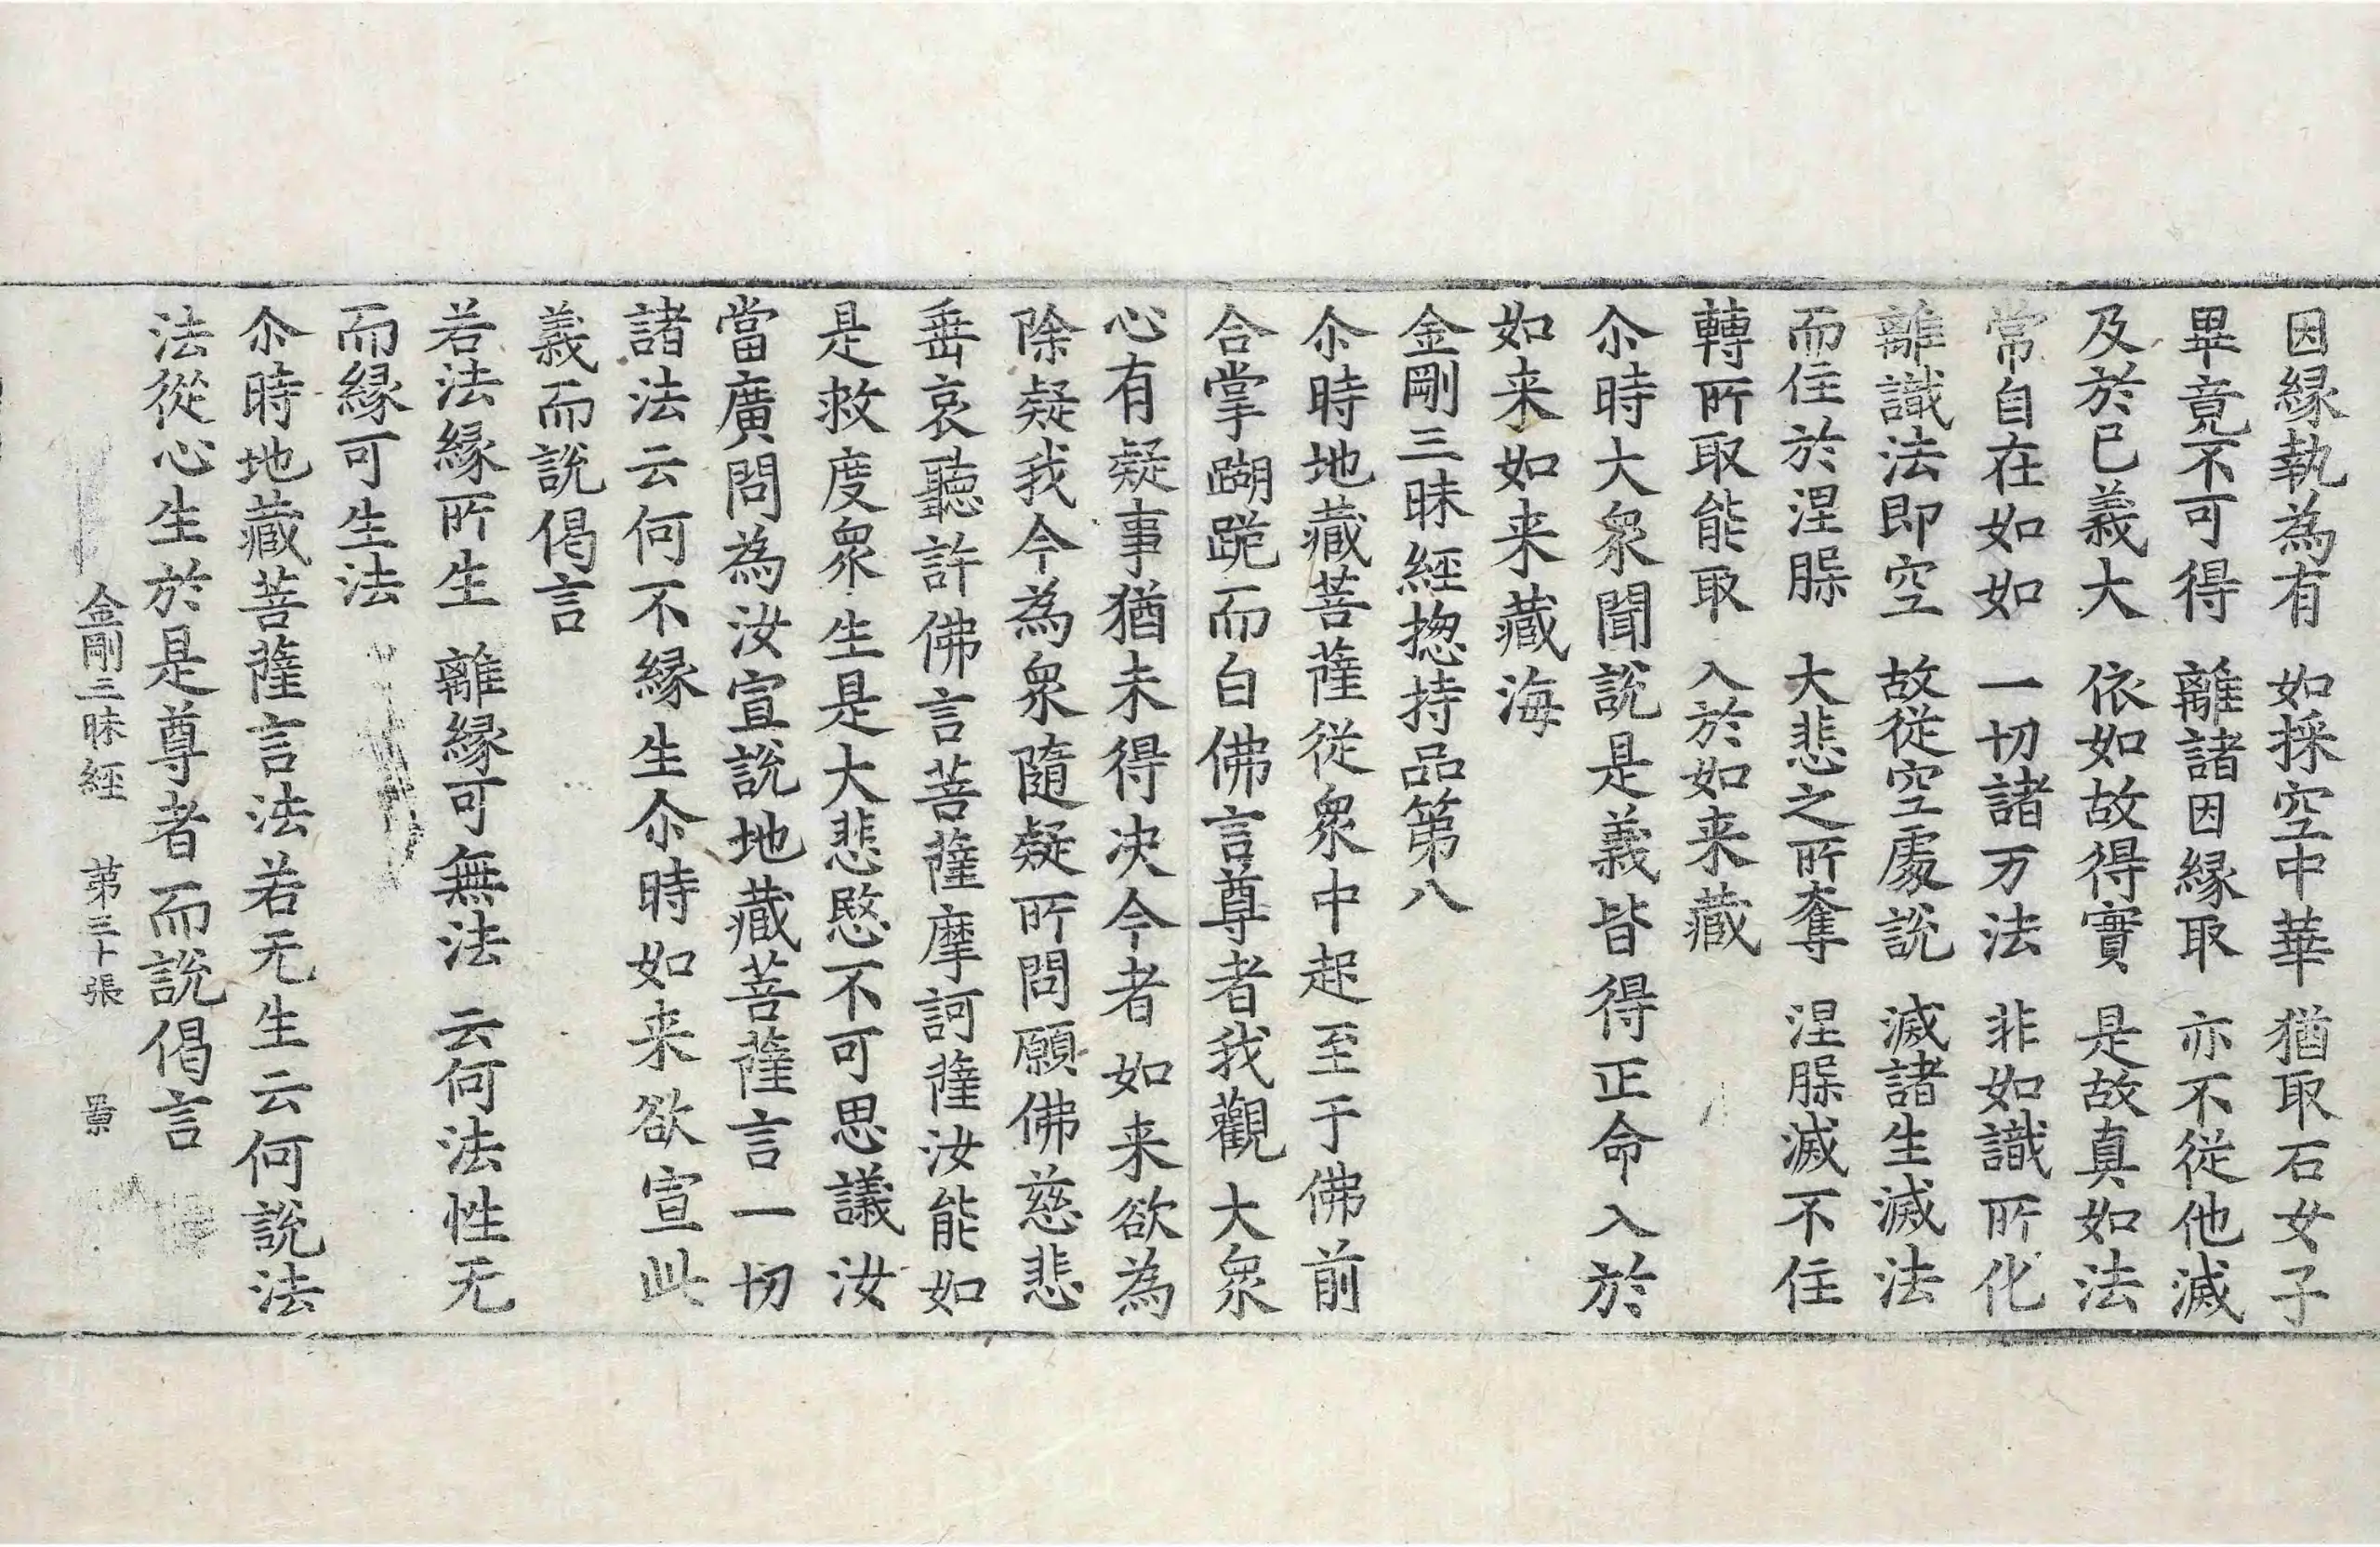 因縁執為有 如採空中華 猶取石女子
畢竟不可得 離諸因縁取 亦不從他滅
及於已義大 依如故得實 是故真如法
常自在如如 一切諸万法 非如識所化
離識法即空 故從空處說 滅諸生滅法
而住於涅脲 大悲之所奪 涅脲滅不住
轉所取能取 入於如来藏
尒時大衆聞說是義皆得正命入於
如来如来藏海
金剛三昧經揔持品第八
尒時地藏菩薩從衆中起至于佛前
合掌䠒跪而白佛言尊者我觀大衆
心有疑事猶未得决今者如来欲為
除疑我今為衆隨疑所問願佛慈悲
垂哀聽許佛言菩薩摩訶薩汝能如
是救度衆生是大悲愍不可思議汝
當廣問為汝宣說地藏菩薩言一切
諸法云何不縁生尒時如来欲宣此
義而說偈言
若法縁所生 離縁可無法 云何法性无
而縁可生法
尒時地藏菩薩言法若无生云何說法
法從心生於是尊者而說偈言
金剛三昧經 苐三十張 景